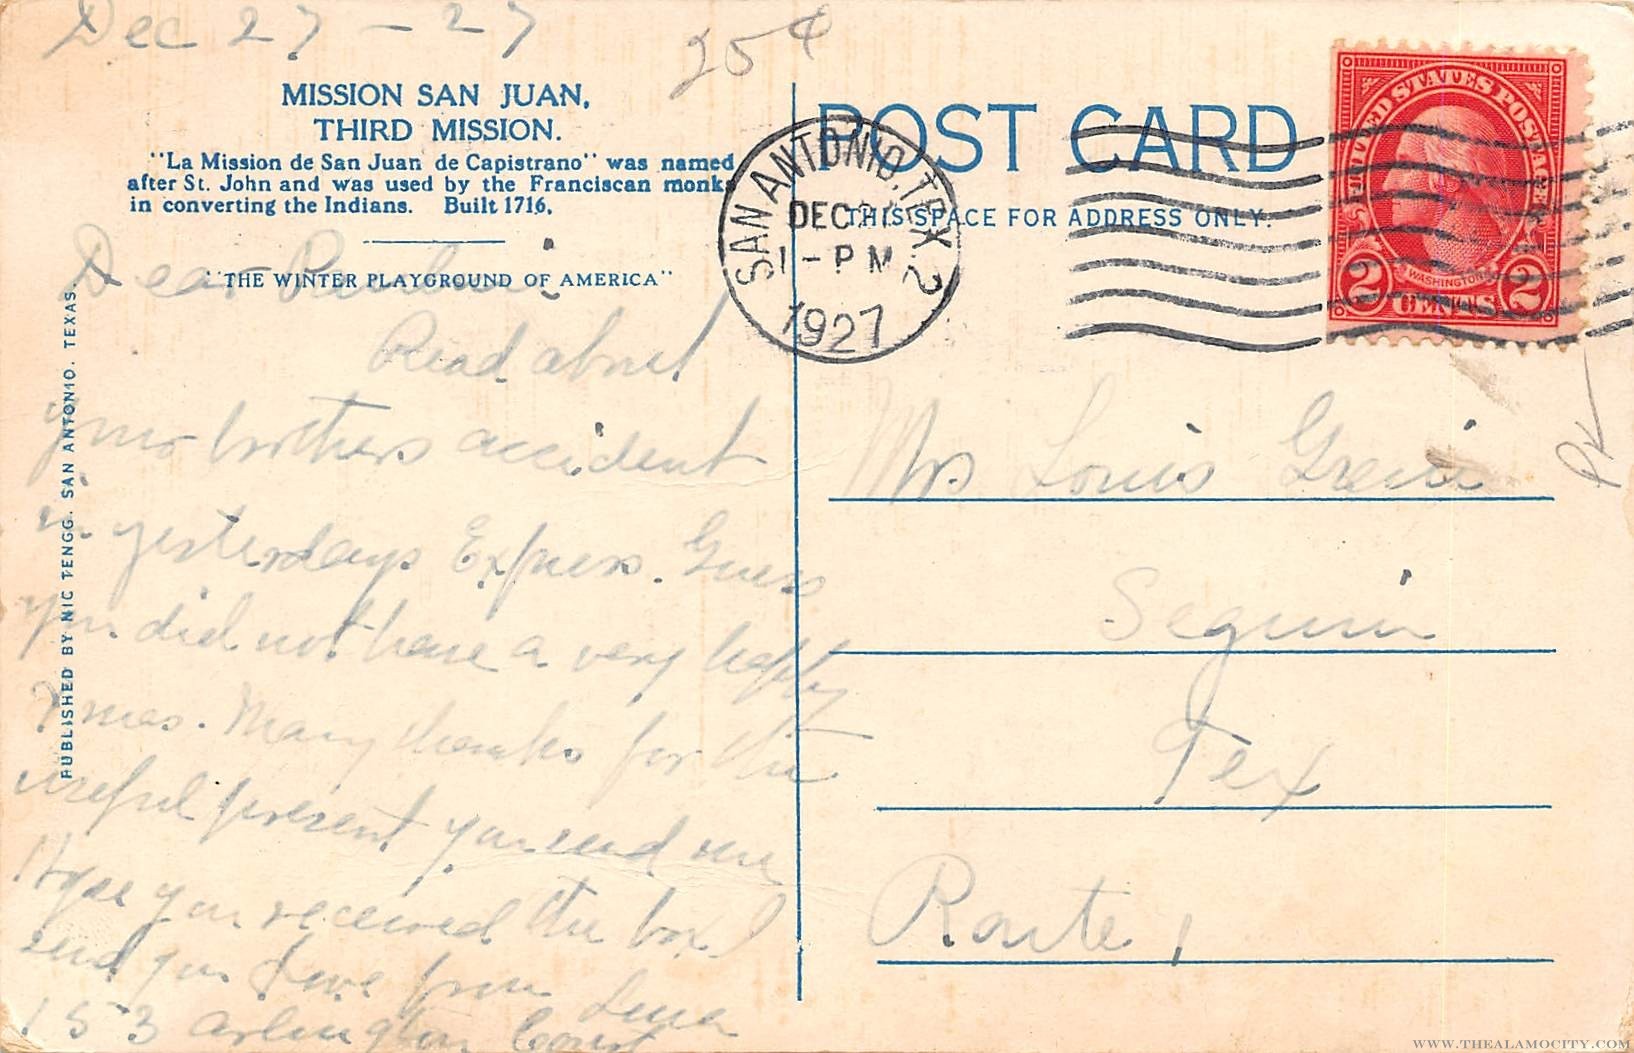 Dec 27 - 27
25¢
MISSION SAN JUAN,
THIRD MISSION.
"La Mission de San Juan de Capistrano" was named
after St. John and was used by the Franciscan monks
in converting the Indians. Built 1716.
"THE WINTER PLAYGROUND OF AMERICA"
PUBLISHED BY NIC TENGG. SAN ANTONIO. TEXAS.
Dear
Read about
your brothers accident
in yesterdays Express. Guess
you did not have a very happy
Xmas. Many thanks for the
useful present you send me
Hope you received the box I
send you Love from
153 Arlington Court
POST CARD
THIS SPACE FOR ADDRESS ONLY.
SAN ANTONIO, TEX. 2
DEC
1 - PM
1927
UNITED STATES POSTAGE
WASHINGTON
2 CENTS 2
Mrs Louis
Seguin
Tex
Route 1
WWW.THEALAMOCITY.COM